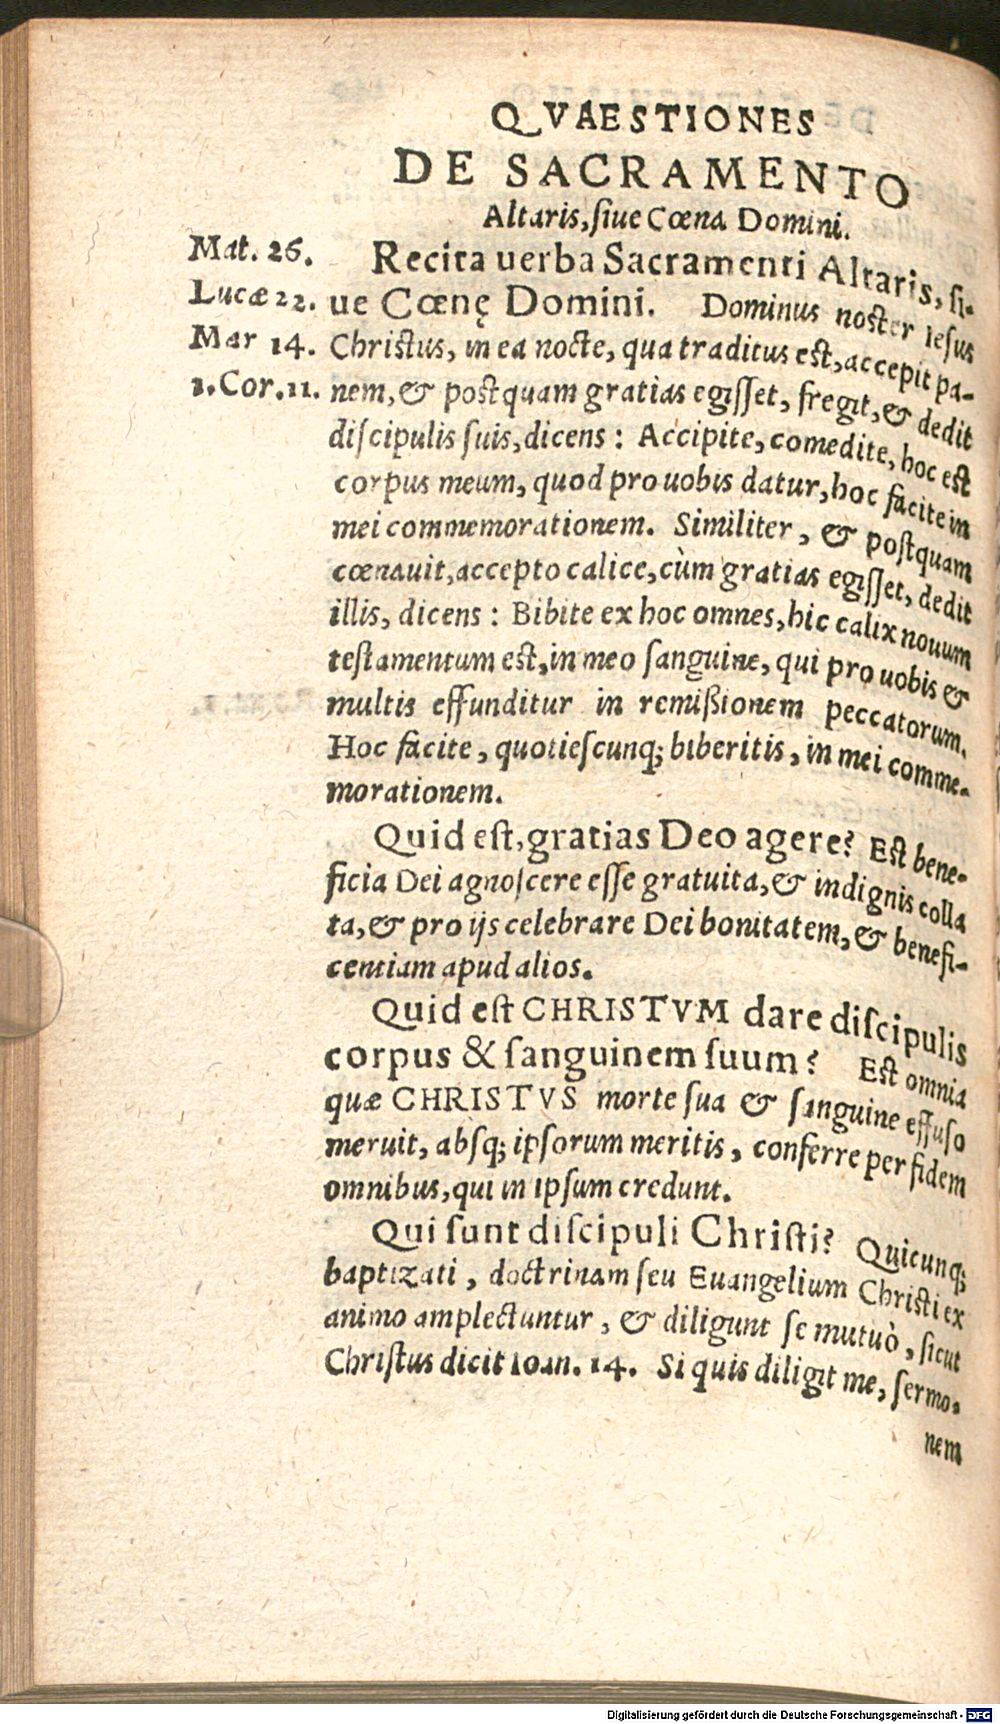 QVAESTIONES
DE SACRAMENTO
Altaris, siue Cœna Domini.
Mat. 26.
Lucæ 22.
Mar 14.
1. Cor. 11.
Recita uerba Sacramenti Altaris, si-
ue Cœnę Domini. Dominus noster Iesus
Christus, in ea nocte, qua traditus est, accepit pa-
nem, & postquam gratias egisset, fregit, & dedit
discipulis suis, dicens: Accipite, comedite, hoc est
corpus meum, quod pro uobis datur, hoc facite in
mei commemorationem. Similiter, & postquam
cœnauit, accepto calice, cùm gratias egisset, dedit
illis, dicens: Bibite ex hoc omnes, hic calix nouum
testamentum est, in meo sanguine, qui pro uobis &
multis effunditur in remißionem peccatorum.
Hoc facite, quotiescunq; biberitis, in mei comme-
morationem.
Quid est, gratias Deo agere? Est bene-
ficia Dei agnoscere esse gratuita, & indignis colla
ta, & pro ijs celebrare Dei bonitatem, & benefi-
centiam apud alios.
Quid est CHRISTVM dare discipulis
corpus & sanguinem suum? Est omnia
quæ CHRISTVS morte sua & sanguine effuso
meruit, absq; ipsorum meritis, conferre per fidem
omnibus, qui in ipsum credunt.
Qui sunt discipuli Christi? Quicunq;
baptizati, doctrinam seu Euangelium Christi ex
animo amplectuntur, & diligunt se mutuò, sicut
Christus dicit Ioan. 14. Si quis diligit me, sermo-
nem
Digitalisierung gefördert durch die Deutsche Forschungsgemeinschaft - DFG